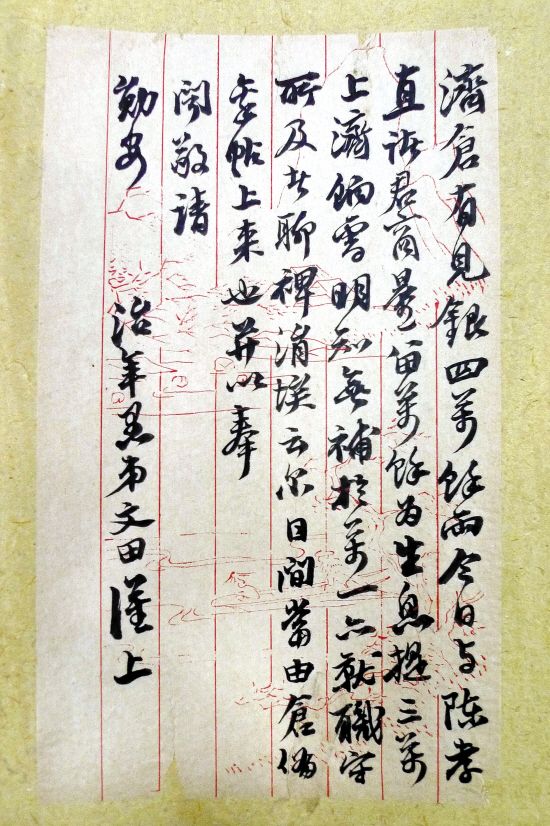 濟倉有見銀四萬餘兩今日与陳孝
直君商量留萬餘为生息提三萬
上濟餉需明知無補於萬一亦就職守
所及者聊裨涓埃云尔日間當由倉備
帖上来也并以奉
聞敬請
勛安 治年愚弟文田謹上